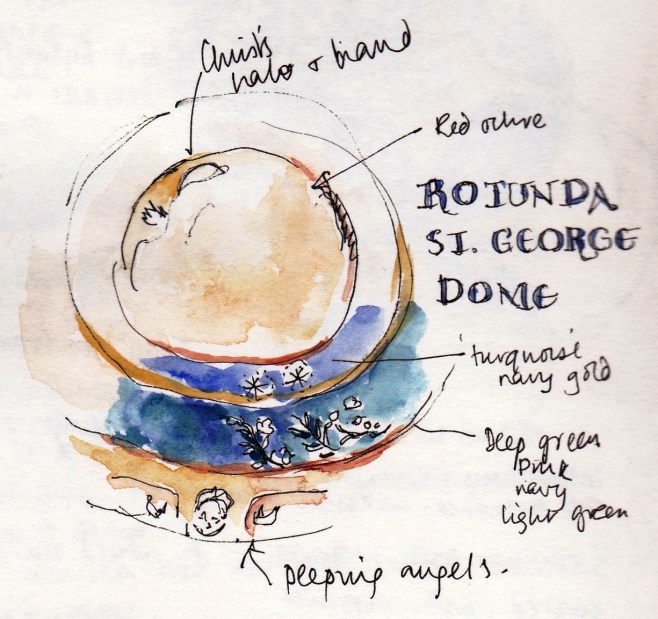 Christ's
halo + hand
Red ochre
ROTUNDA
ST. GEORGE
DOME
turquoise
navy gold
Deep green
pink
navy
light green
peeping angels.